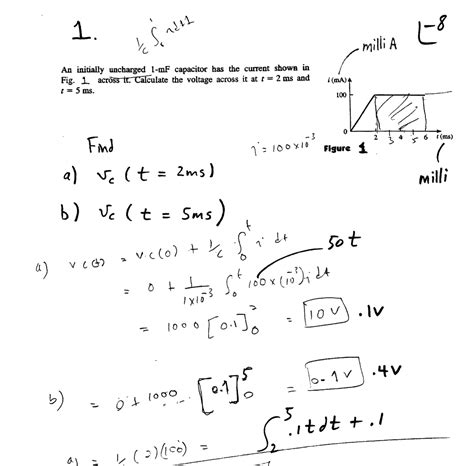 1.
1/c ∫ i dt + 1
L-8
milli A
An initially uncharged 1-mF capacitor has the current shown in
Fig. 1 across it. Calculate the voltage across it at t = 2 ms and
t = 5 ms.
i (mA)
100
0
2 3 4 5 6 t (ms)
i = 100 x 10^-3
Figure 1
milli
Find
a) vc ( t = 2ms)
b) vc ( t = 5ms)
a) vc(t) = vc(0) + 1/c ∫_0^t i dt
50t
= 0 + 1/(1x10^-3) ∫_0^t 100 x (10^-3) i dt
= 1000 [0.1]_0^2 = 10 V .1V
b) = 0 + 1000 [0.1]_0^5 = 0.1V .4V
∫_2^5 .1tdt + .1
a1 = 1/2 (2)(100) =